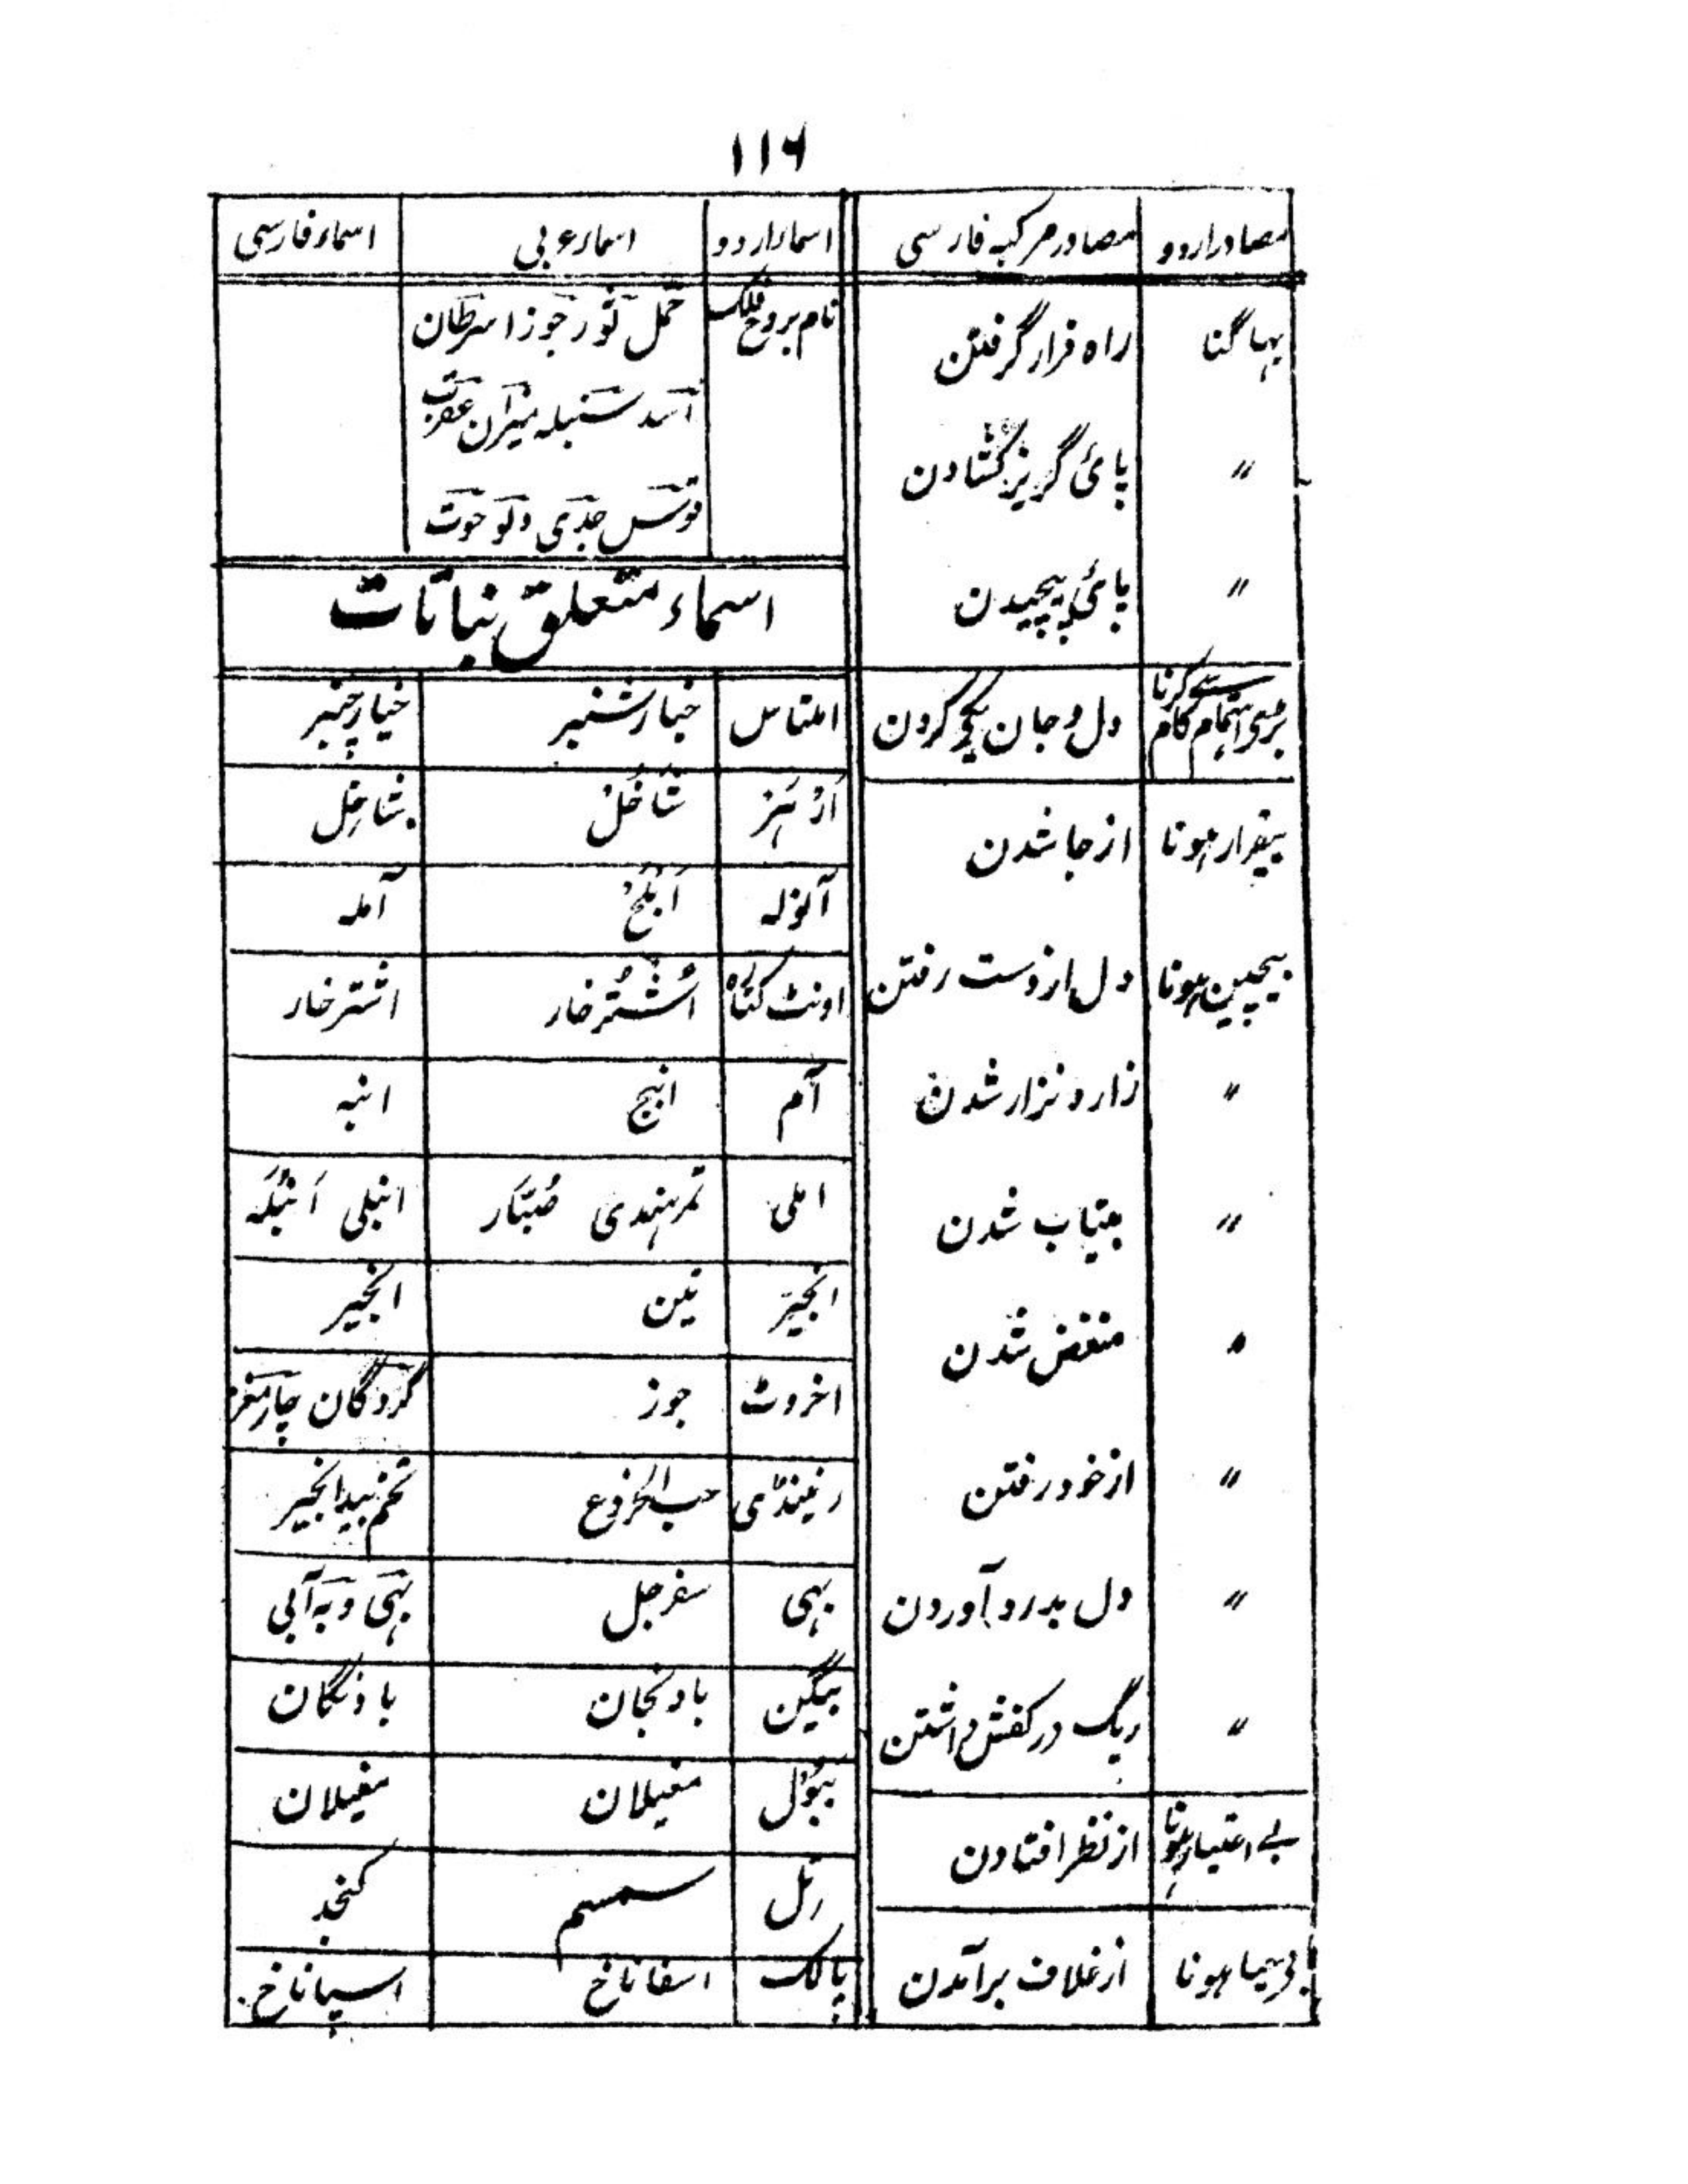 ۱۱۶
مصادر اردو | مصادر مرکبہ فارسی
بہاگنا | راہ فرار گرفتن
〃 | پائ گریز کشادن
〃 | پائ پیچیدن
بڑی اہتمام سے کام کرنا | دل و جان یکے کردن
بیقرار ہونا | از جا شدن
بیچین ہونا | دل از دست رفتن
〃 | زار و نزار شدن
〃 | بیتاب شدن
〃 | منغض شدن
〃 | از خود رفتن
〃 | دل بدرد آوردن
〃 | ریگ در کفش داشتن
بے اعتبار ہونا | از نظر افتادن
بیحیا ہونا | از غلاف برآمدن
اسماء اردو | اسماء عربی | اسماء فارسی
نام بروج فلک | حمل ثور جوزا سرطان
اسد سنبلہ میزان عقرب
قوس جدی دلو حوت
اسماء متعلق نباتات
املتاس | خیارشنبر | خیارچنبر
اڑہر | شاخل | شاخل
آنولہ | املج | آملہ
اونٹ کٹارہ | اشترخار | اشترخار
آم | انبج | انبہ
املی | تمر ہندی صبار | انبلی انبلہ
انجیر | تین | انجیر
اخروٹ | جوز | گردگان چارمغز
رینڈی | حب الخروع | تخم بیدانجیر
بہی | سفرجل | بہی و بہ آبی
بیگن | بادنجان | بادنگان
ببول | مغیلان | مغیلان
تل | سمسم | کنجد
پالک | اسفاناخ | اسپاناخ